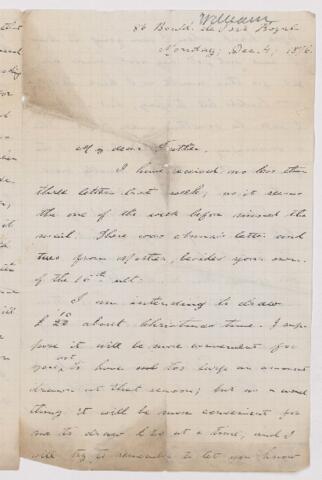 William
86 Bould. de Port Royal
Monday, Dec. 4, 1876.
My dear Father,
I have received no less than
three letters last week, as it seems
the one of the week before missed the
mail. There was Annie's letter and
two from Mother, besides your own
of the 16th ult.
I am intending to draw
£ 20 10 about Christmas time. I sup-
pose it will be more convenient for
you, not to have too large an amount
drawn at that season; but as a usual
thing it will be more convenient for
me to draw £20 at a time, and I
will try to remember to let you know